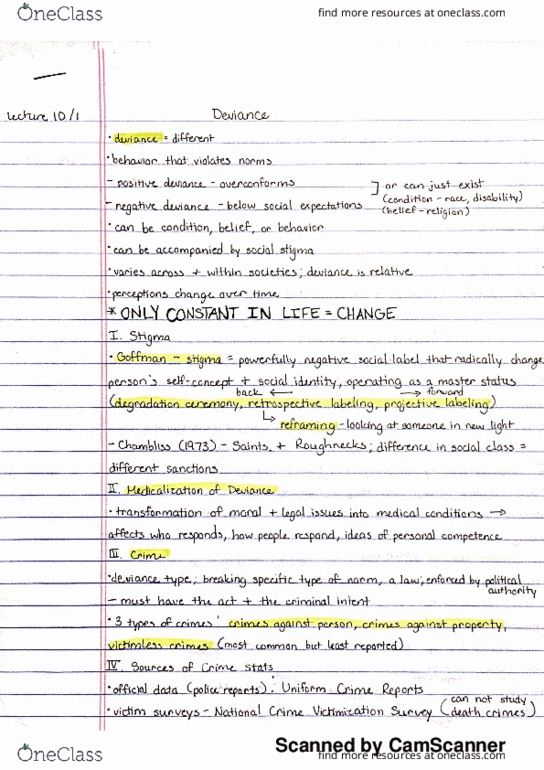 OneClass
find more resources at oneclass.com
Lecture 10/1
Deviance
• deviance = different
• behavior that violates norms
- positive deviance - overconforms
- negative deviance - below social expectations
] or can just exist
(condition - race, disability)
(belief - religion)
• can be condition, belief, or behavior
• can be accompanied by social stigma
• varies across + within societies; deviance is relative
• perceptions change over time
* ONLY CONSTANT IN LIFE = CHANGE
I. Stigma
• Goffman - stigma = powerfully negative social label that radically change
person's self-concept + social identity, operating as a master status
back ← → forward
(degradation ceremony, retrospective labeling, projective labeling)
↳ reframing - looking at someone in new light
- Chambliss (1973) - Saints + Roughnecks; difference in social class =
different sanctions
II. Medicalization of Deviance
• transformation of moral + legal issues into medical conditions →
affects who responds, how people respond, ideas of personal competence
III. Crime
• deviance type; breaking specific type of norm, a law; enforced by political
authority
- must have the act + the criminal intent
• 3 types of crimes: crimes against person, crimes against property,
victimless crimes (most common but least reported)
IV. Sources of Crime Stats
• official data (police reports): Uniform Crime Reports
• victim surveys - National Crime Victimization Survey (can not study
death crimes)
Scanned by CamScanner
OneClass
find more resources at oneclass.com